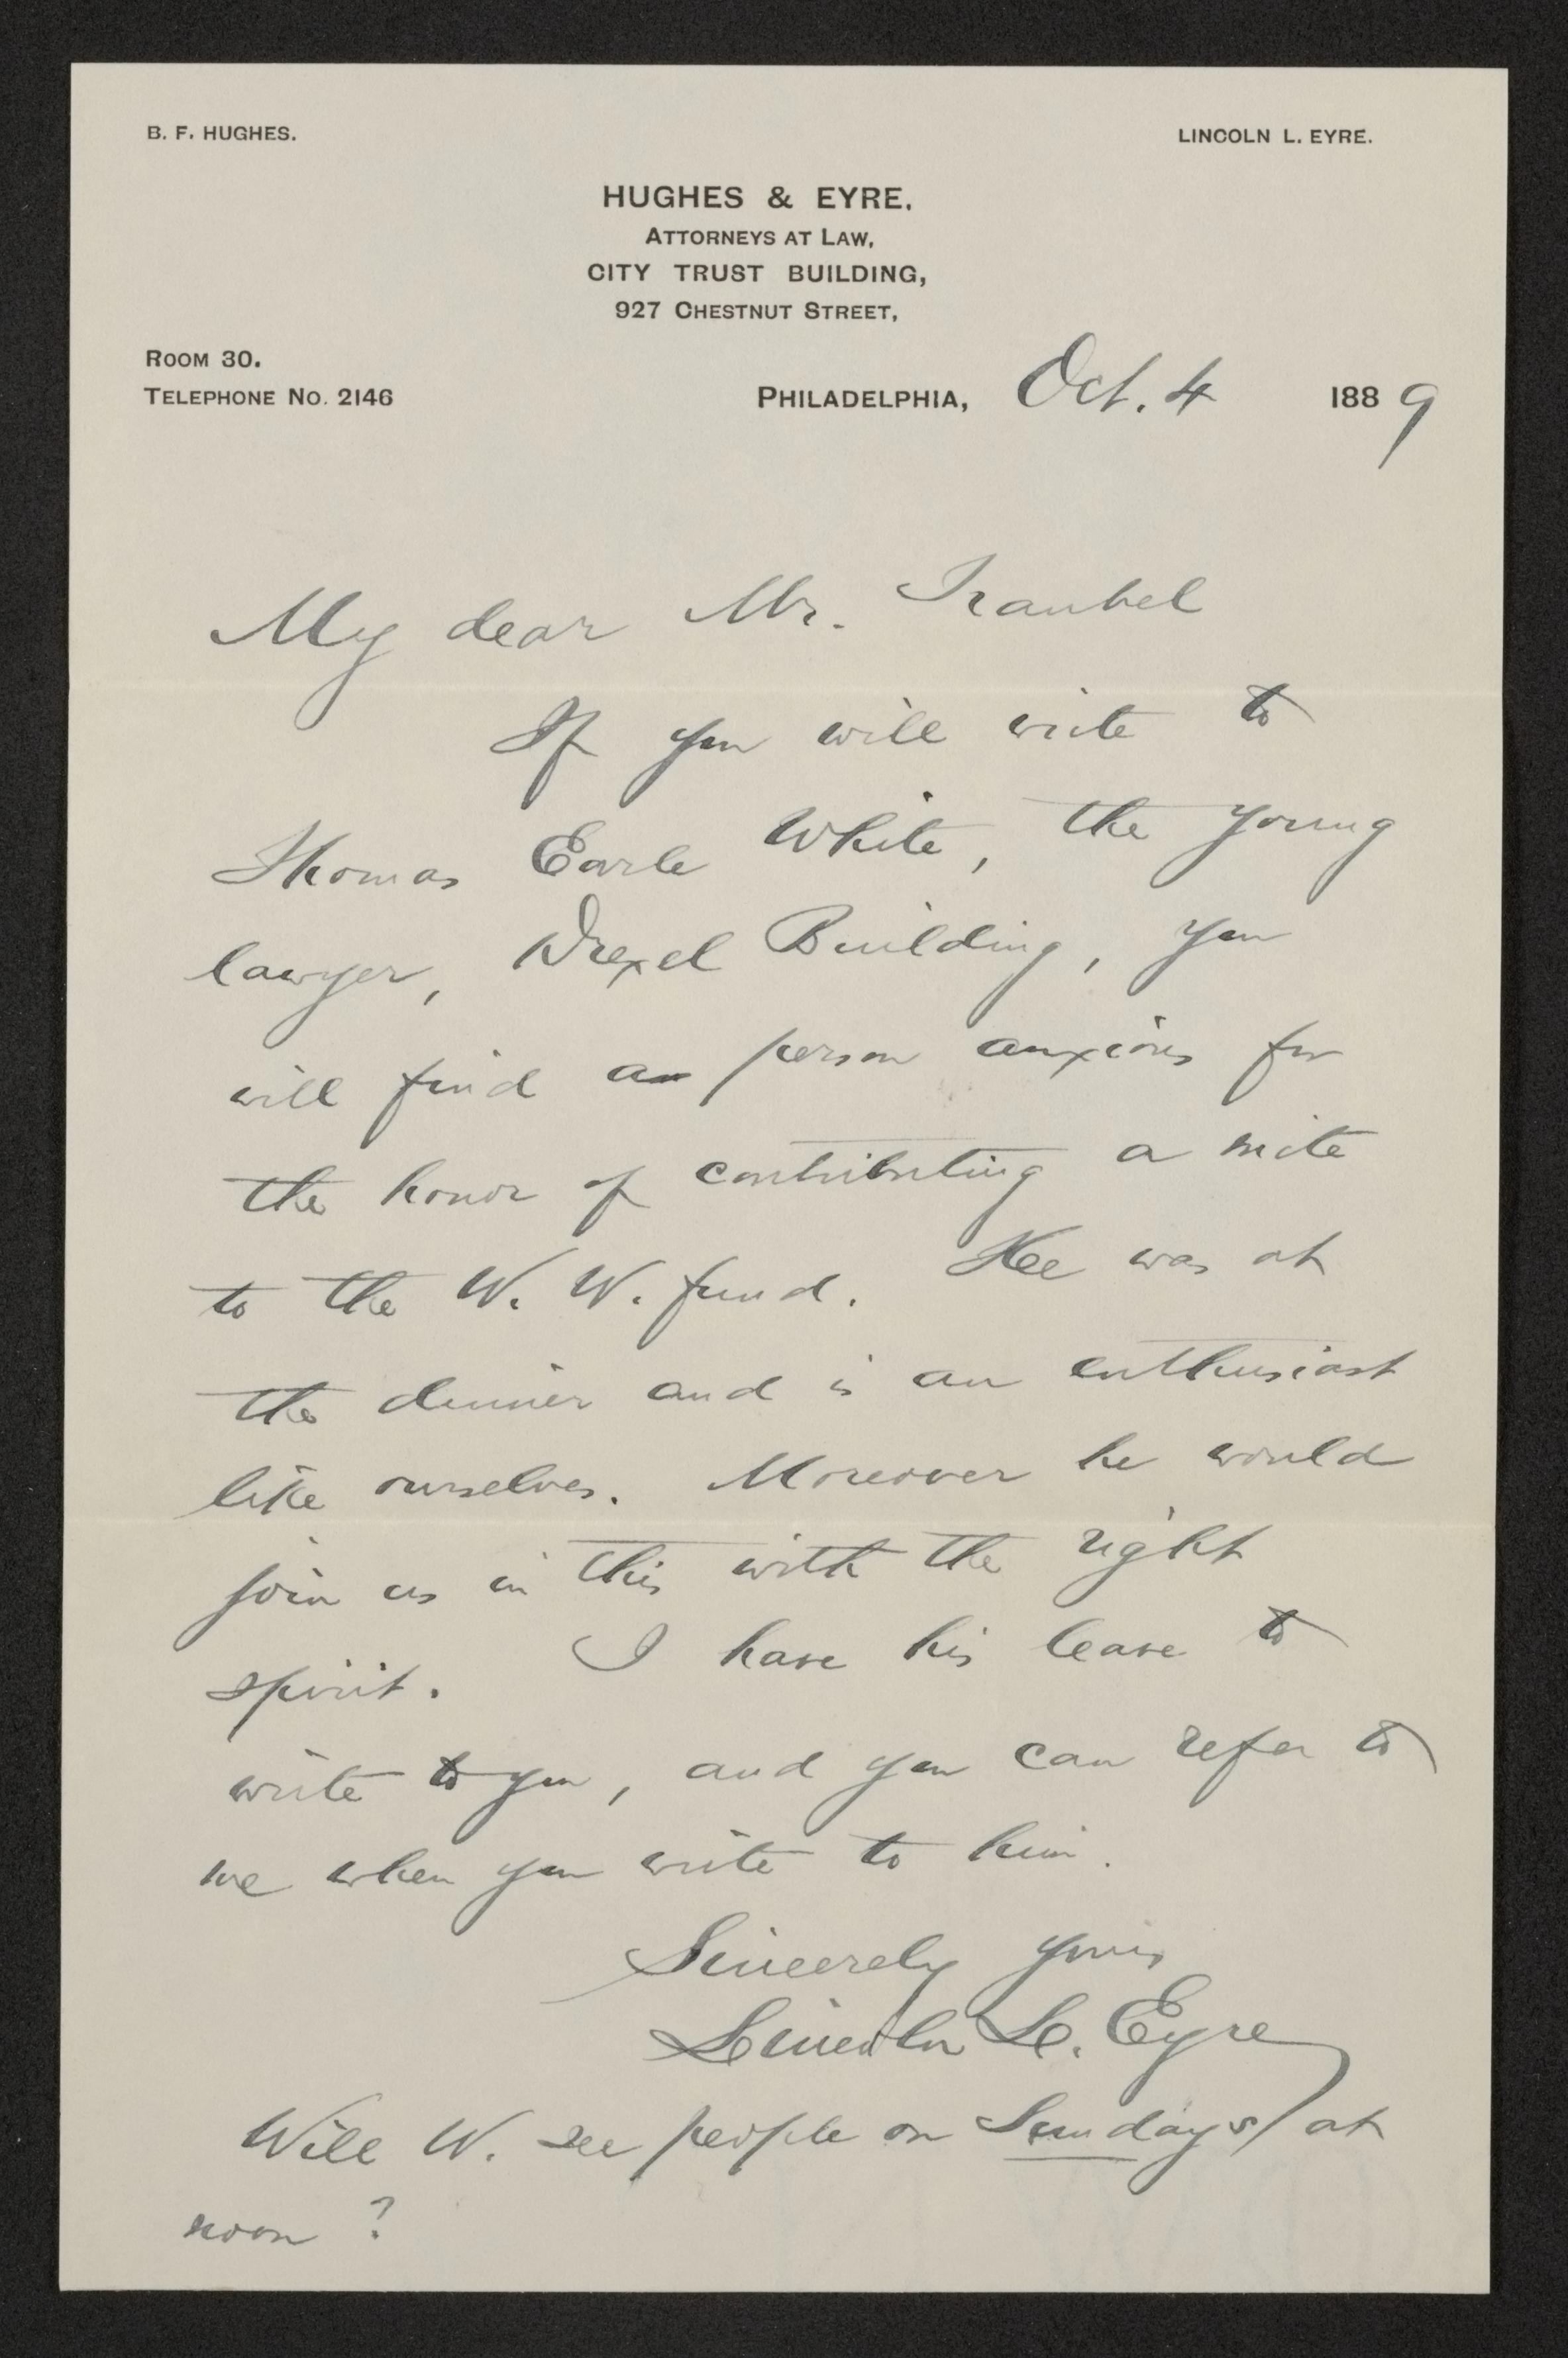 B. F. HUGHES. LINCOLN L. EYRE.
HUGHES & EYRE,
ATTORNEYS AT LAW,
CITY TRUST BUILDING,
927 CHESTNUT STREET,
ROOM 30.
TELEPHONE NO. 2146 PHILADELPHIA, Oct. 4 1889
My dear Mr. Traubel
If you will write to
Thomas Earle White, the young
lawyer, Drexel Building, you
will find a person anxious for
the honor of contributing a mite
to the W. W. fund. He was at
the dinner and is an enthusiast
like ourselves. Moreover he would
join us in this with the right
spirit. I have his leave to
write to you, and you can refer to
me when you write to him.
Sincerely yours
Lincoln L. Eyre
Will W. see people on Sundays/ at
noon?